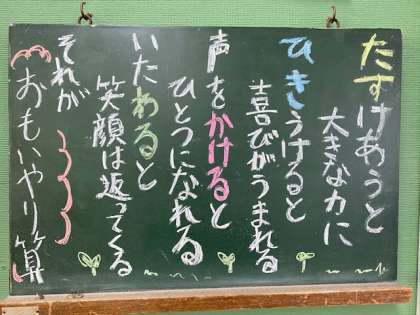 たすけあうと
大きな力に
ひきうけると
喜びがうまれる
声をかけると
ひとつになれる
いたわると
笑顔は返ってくる
それが
おもいやり算